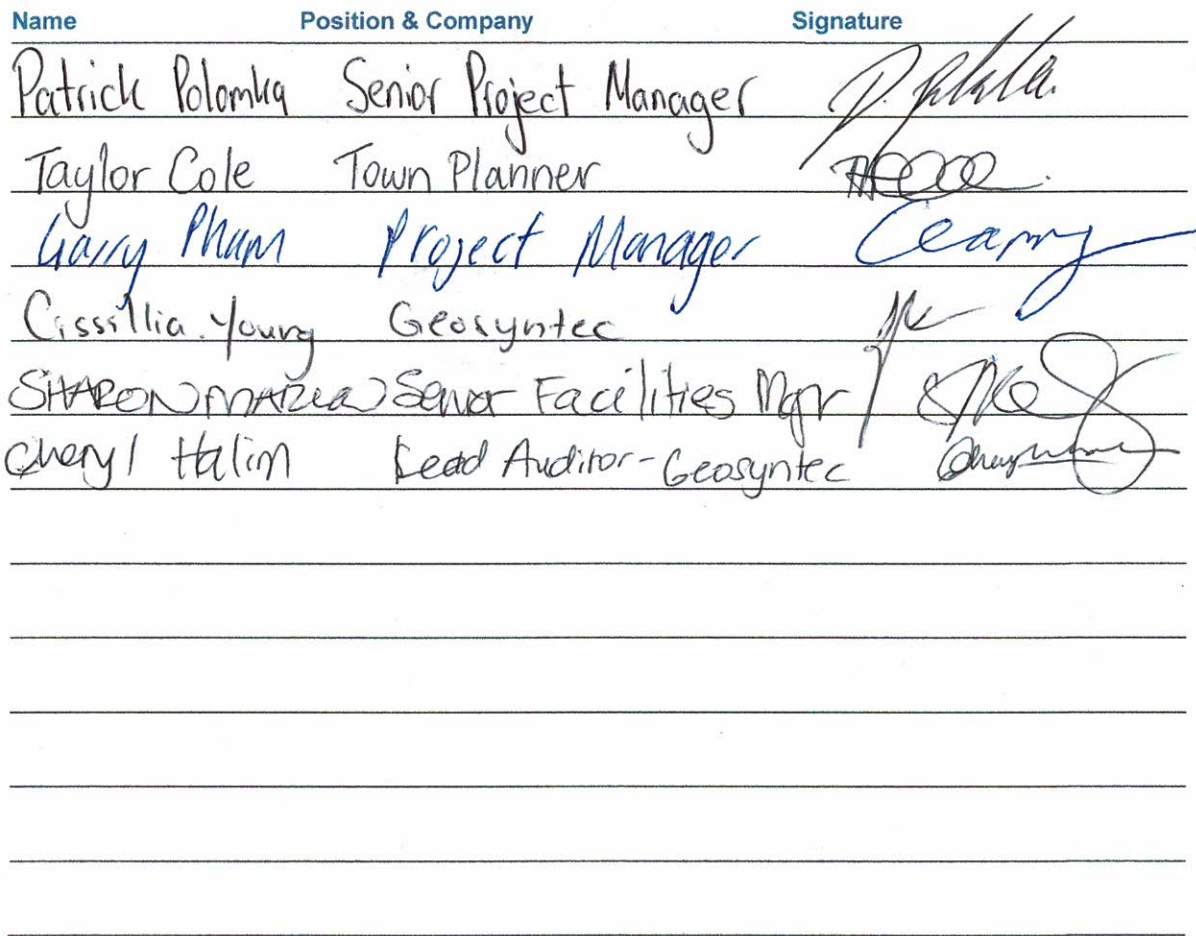 Name Position & Company Signature
Patrick Polomka Senior Project Manager
Taylor Cole Town Planner
Garry Pham Project Manager
Cissillia Young Geosyntec
SHARON Senior Facilities Mgr
Cheryl Halim Lead Auditor - Geosyntec